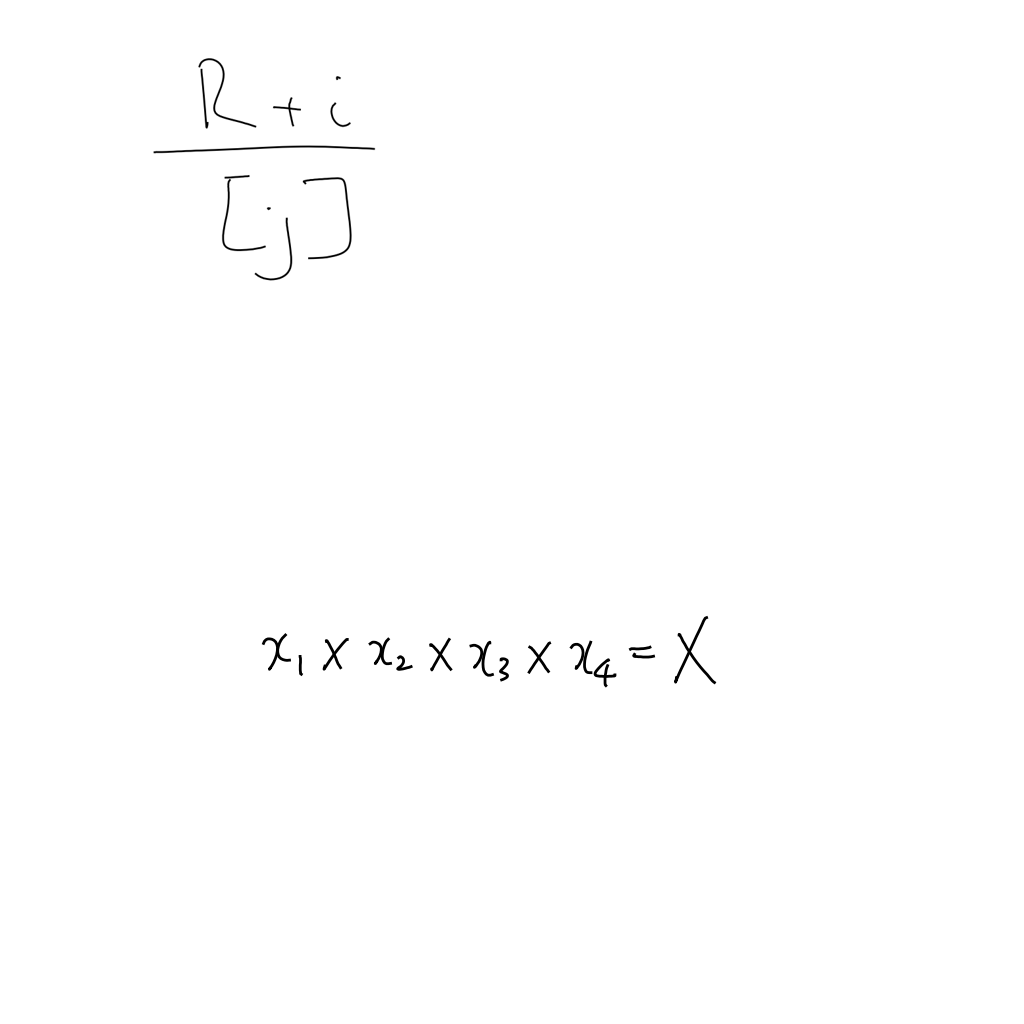 R + i
[j]
x₁ × x₂ × x₃ × x₄ = X